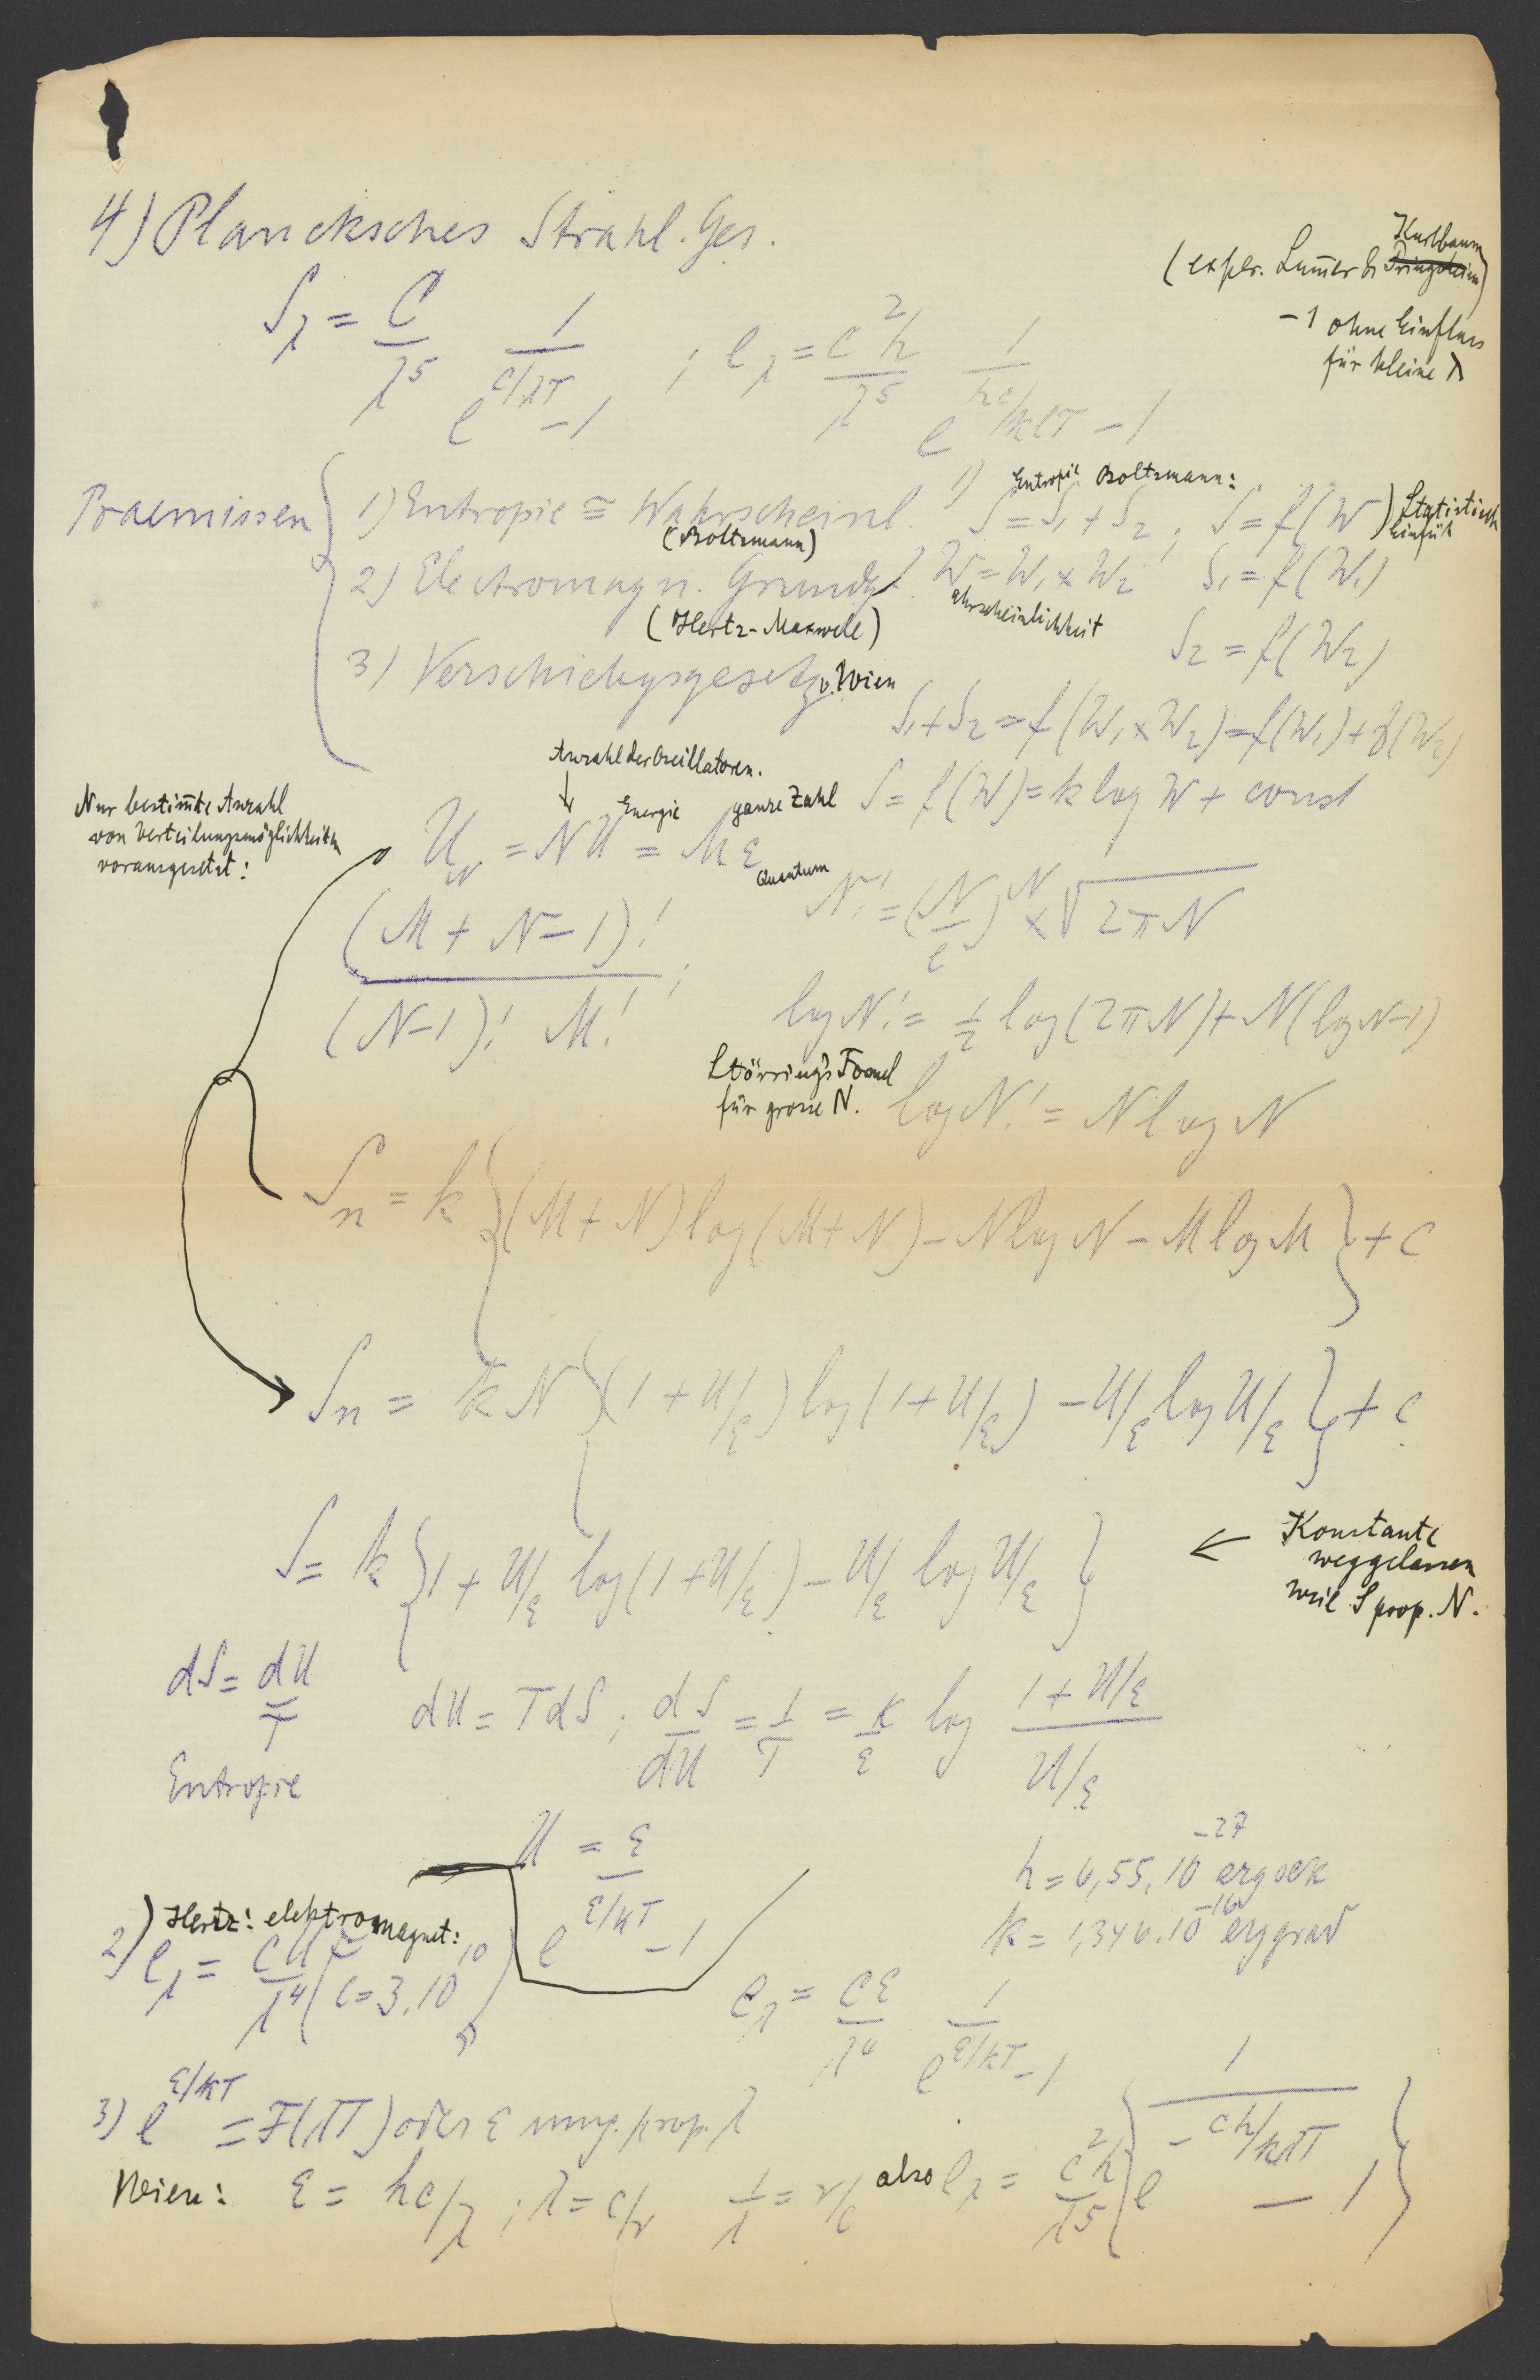 4) Plancksches Strahl. Ges.
(exper. Lum̅er & Pringsheim Kurlbaum)
-1 ohne Einfluss
für kleine λ
S_λ = C/λ^5 1/(e^(c/λT) -1) ; e_λ = c^2h/λ^5 1/(e^(hc/kλT) -1)
Praemissen
1) Entropie ≅ Wahrscheinl.
(Boltzmann)
2) Electromagn. Grundgl.
(Hertz-Maxwell)
3) Verschiebgsgesetz v. Wien
1) Entropie Boltzmann:
S = S_1 + S_2 ; S = f(W) Statistisch
W = W_1 × W_2 S_1 = f(W_1)
ahrscheinlichkeit
S_2 = f(W_2)
S_1 + S_2 = f(W_1 × W_2) = f(W_1) + f(W_2)
S = f(W) = k log W + const
Nur bestim̅te Anzahl
von Verteilungsmöglichkeiten
vorausgesetzt:
Anzahl der Oscillatoren.
Energie ganze Zahl
U_N = NU = Mε
Quantum
(M + N - 1)! / (N-1)! M! ;
N! = (N/e)^N × √2πN
log N! = 1/2 log(2πN) + N(log N-1)
Störring's Formel
für grosse N.
log N! = N log N
S_n = k {(M + N) log (M + N) - N log N - M log M} + C
S_n = kN {(1 + U/ε) log (1 + U/ε) - U/ε log U/ε} + c
S = k {1 + U/ε log(1 + U/ε) - U/ε log U/ε}
← Konstante
weggelassen
weil S prop. N.
dS = dU/T
Entropie
dU = TdS ; dS/dU = 1/T = k/ε log (1 + U/ε)/(U/ε)
U = ε/(e^(ε/kT) -1)
h = 6,55.10^-27 erg sek
k = 1,346.10^-16 erg grad
2) Hertz: elektromagnet:
e_λ = cU/λ^4 (c = 3.10^10)
e_λ = cε/λ^4 1/(e^(ε/kT) -1)
3) e^(ε/kT) = F(λT) oder ε umg. prop. λ
Wien: ε = hc/λ ; λ = c/ν 1/λ = ν/c also e_λ = c^2h/λ^5 {1/(e^(-ch/kλT) - 1)}